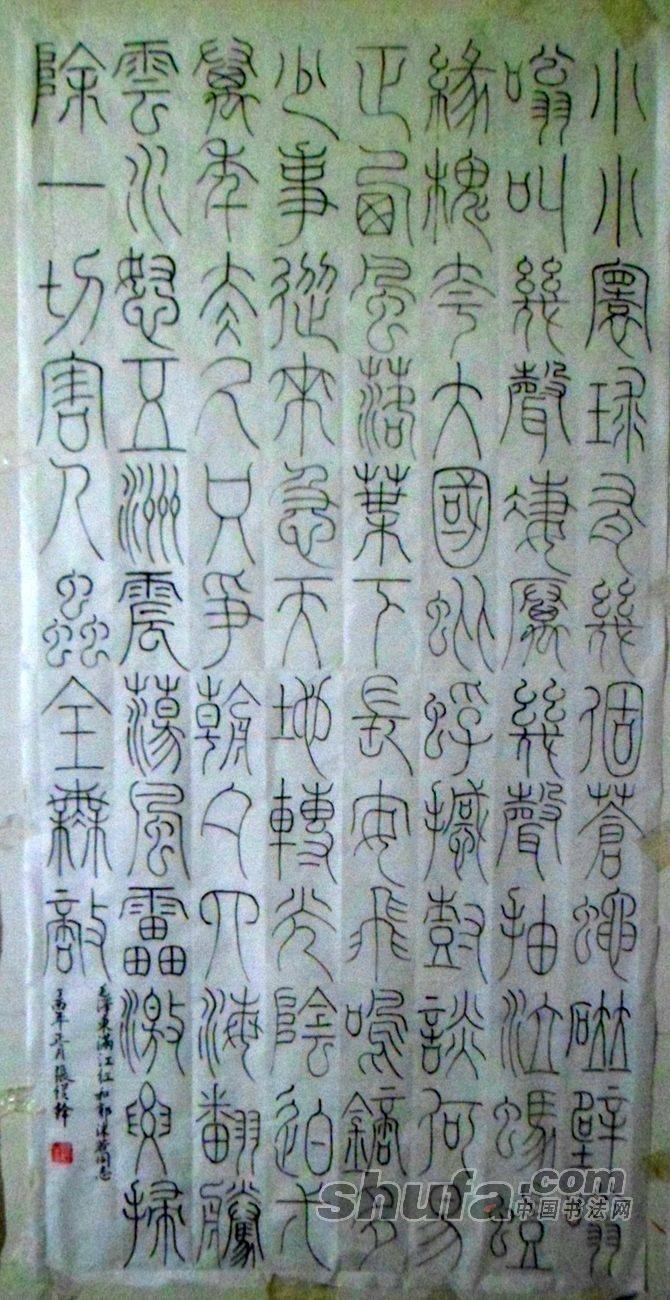 小小寰球有幾個蒼蠅碰壁嗡
嗡叫幾聲凄厲幾聲抽泣螞蟻
緣槐夸大國蚍蜉撼樹談何易
正西風落葉下長安飛鳴鏑多
少事從來急天地轉光陰迫弌
萬年太久只爭朝夕四海翻騰
雲水怒五洲震蕩風雷激要掃
除一切害人蟲全無敵
毛澤東滿江红和郭沫若同志
年正月張
shufa.com
中国书法网